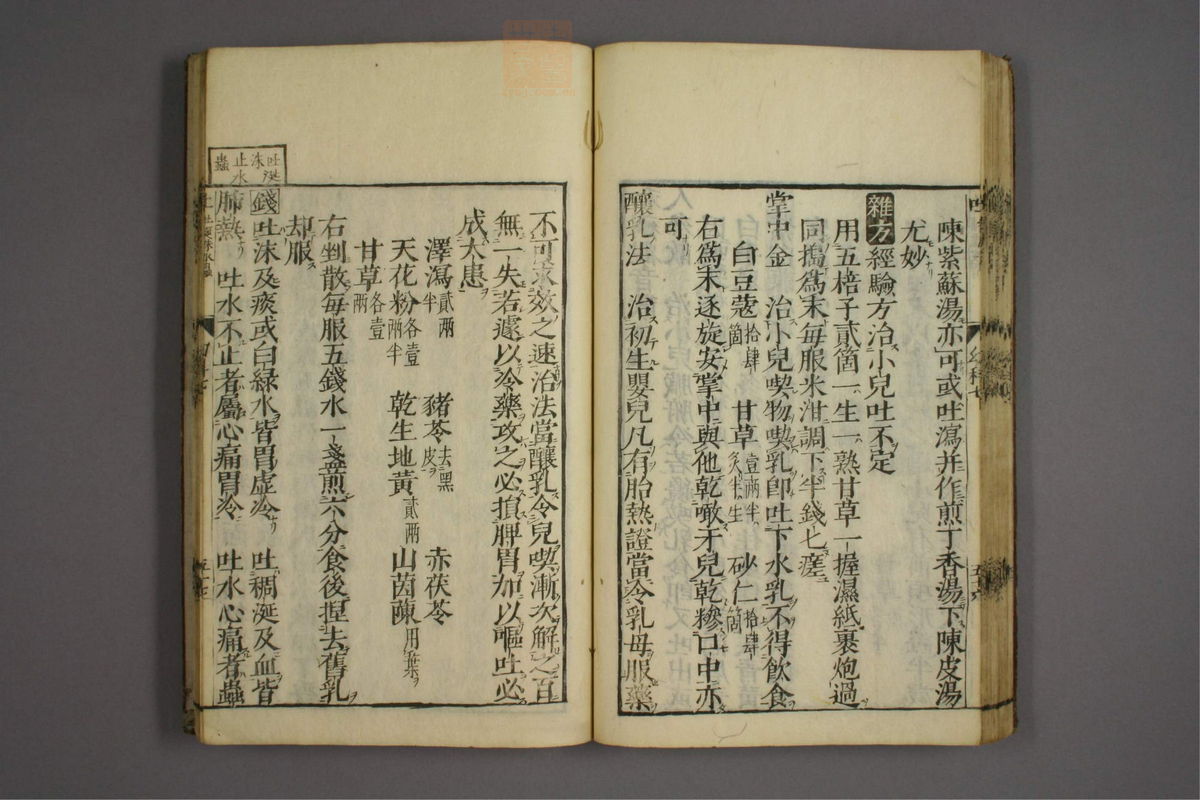 陳紫蘇湯亦可或吐瀉并作煎丁香湯下陳皮湯
尤妙
雜方經驗方治小兒吐不定
用五棓子貳箇一生一熟甘草一握濕紙裹炮過
同擣爲末每服米泔調下半錢匕瘥
掌中金 治小兒喫物喫乳卽吐下水乳不得飲食
白豆蔻拾肆箇 甘草壹兩半炙半生 砂仁拾肆箇
右爲末逐旋安掌中與他乾噉牙兒乾糝口中亦
可
釀乳法 治初生嬰兒凡有胎熱證當冷乳母服藥
不可求效之速治法當釀乳令兒喫漸次解之百
無一失若遽以冷藥攻之必損脾胃加以嘔吐必
成大患
澤瀉貳兩半 豬苓去黑皮 赤茯苓
天花粉各壹兩半 乾生地黃貳兩 山茵蔯用葉
甘草各壹兩
右剉散每服五錢水一盞煎六分食後捏去舊乳
却服
錢吐沫及痰或白綠水皆胃虛冷 吐稠涎及血皆
肺熱 吐水不止者屬心痛胃冷 吐水心痛者蟲
吐涎
沫
止水
蟲